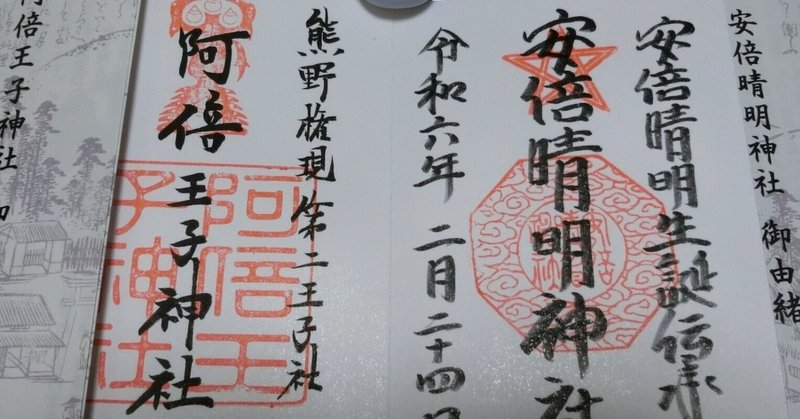 安倍晴明神社 御由緒
安倍晴明生誕伝承
安倍晴明神社
令和六年 二月二十四日
熊野権現第二王子社
阿倍王子神社
阿倍王子神社
阿倍王子神社